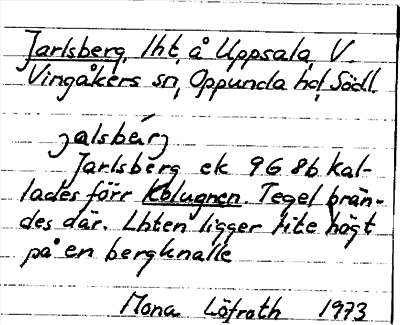 Jarlsberg, lht, å Uppsala, V.
Vingåkers sn, Oppunda hd, Södl.
jalsbärj
Jarlsberg ek 9G 8b kal-
lades förr Kolugnen. Tegel brän-
des där. Lhten ligger lite högt
på en bergknalle
Mona Löfroth 1973